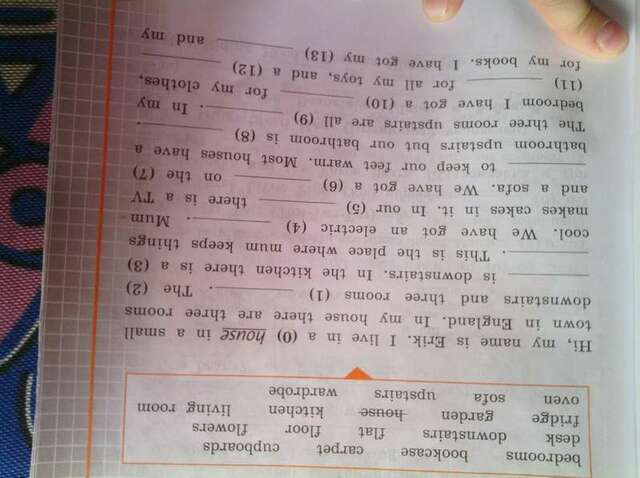 bedrooms bookcase carpet cupboards
desk downstairs flat floor flowers
fridge garden house kitchen living room
oven sofa upstairs wardrobe
Hi, my name is Erik. I live in a (0) house in a small
town in England. In my house there are three rooms
downstairs and three rooms (1) ________. The (2)
________ is downstairs. In the kitchen there is a (3)
________. This is the place where mum keeps things
cool. We have got an electric (4) ________. Mum
makes cakes in it. In our (5) ________ there is a TV
and a sofa. We have got a (6) ________ on the (7)
________ to keep our feet warm. Most houses have a
bathroom upstairs but our bathroom is (8) ________.
The three rooms upstairs are all (9) ________. In my
bedroom I have got a (10) ________ for my clothes,
(11) ________ for all my toys, and a (12) ________
for my books. I have got my (13) ________ and my